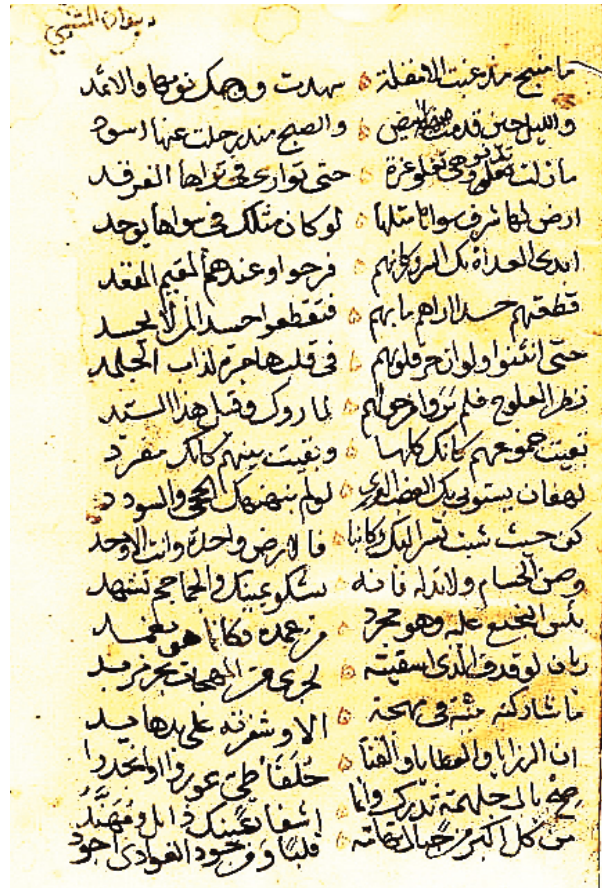 ديوان المتنبي
ما منبج مذ غبت الا مقلة سهدت ووجهك نومها والاثمد
والليل حين قدمت فيها ابيض والصبح منذ رحلت عنها اسود
ما زلت تدنو وهي تعلو عزة حتى توارى في ثراها الفرقد
ارض لها شرف سواها مثلها لو كان مثلك في سواها يوجد
ابدى العداة بك السرور كانهم فرحوا وعندهم المقيم المقعد
قطعتهم حسدا اراهم ما بهم فتقطعوا حسدا لمن لا يحسد
حتى انثنوا ولو ان حر قلوبهم في قلب هاجرة لذاب الجلمد
نظر العلوج فلم يروا من حولهم لما راوك وقيل هذا السيد
بقيت جموعهم كانك كلها وبقيت بينهم كانك مفرد
لهفان يستوبي بك الغضب الورى لو لم ينهنهك الحجى والسودد
كن حيث شئت تسر اليك ركابنا فالارض واحدة وانت الاوحد
وصن الحسام ولا تذله فانه يشكو يمينك والجماجم تشهد
يبس النجيع عليه وهو مجرد من غمده وكانما هو مغمد
ريان لو قذف الذي اسقيته لجرى من المهجات بحر مزبد
ما شاركته منية في مهجة الا وشفرته على يدها يد
ان الرزايا والعطايا والقنا حلفاء طي غوروا او انجدوا
صح يا لجلهمة تذرك وانما اشفار عينك ذابل ومهند
من كل اكبر من جبال تهامة قلبا ومن جود الغوادي اجود